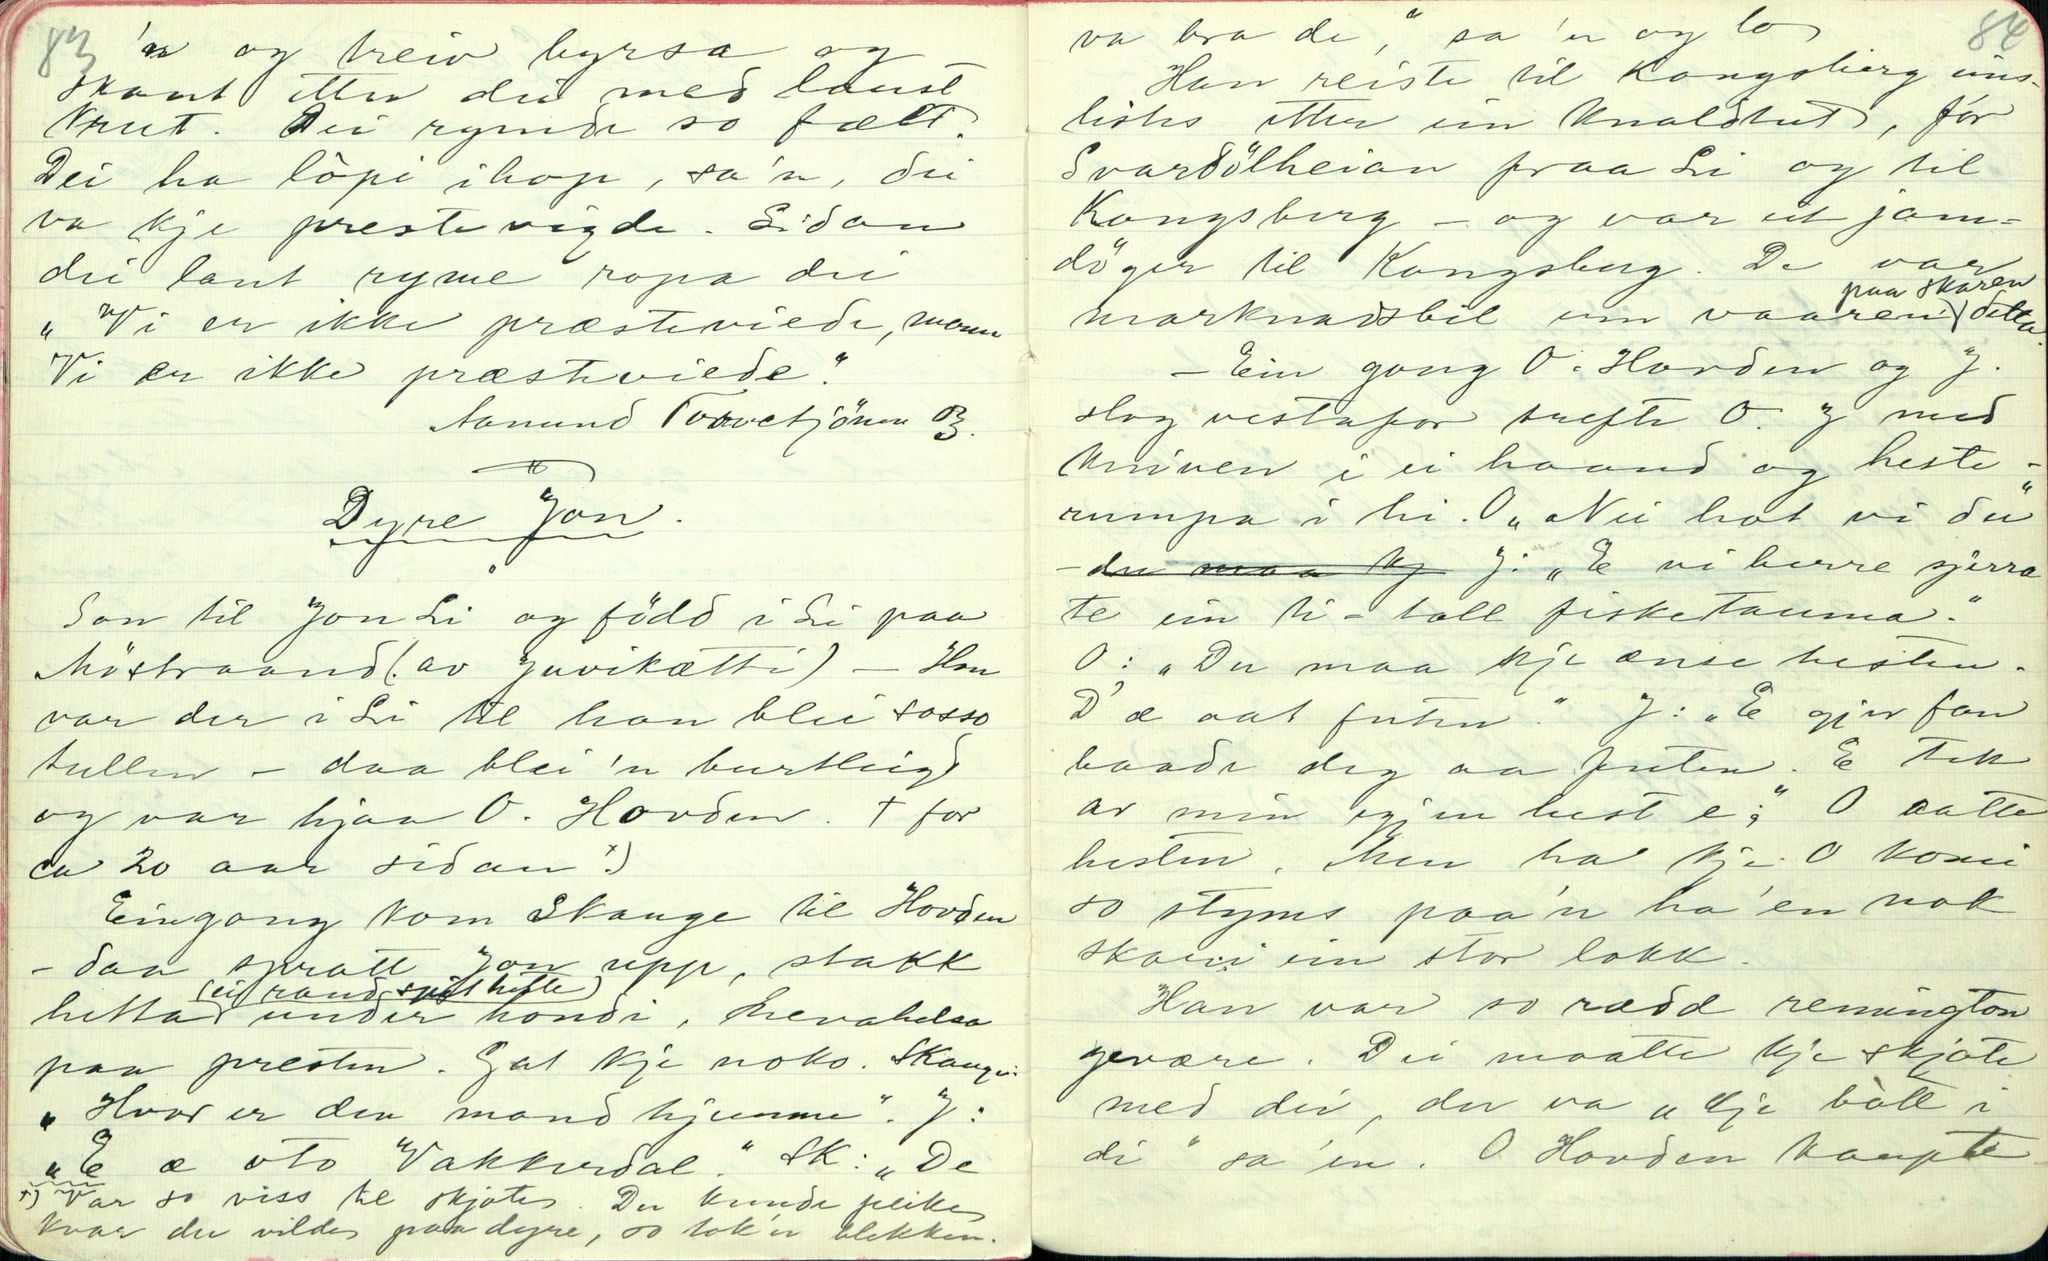 83
'n og treiv byrsa og
skaut etter dei med laust
krut. Dei rymde so fælt.
Dei ha löpi ihop, sa'n, dei
va kje prestevigde. Sidan
dei laut ryme ropa dei
"Vi er ikke præsteviede, mann
Vi er ikke præsteviede".
Aanund Torvetjönn B.
Dyre Jon.
Son til Jon Li og född i Li paa
Möstraand (av Juvikætti) - Han
var der i Li til han blei sosso
tullen - daa blei 'n burtleigd
og var hjaa O. Hovden. † for
ca 20 aar sidan x)
Eingong kom Skauge til Hovden
- daa spratt Jon upp, stakk
(ei rand
hetta under hondi, helsa
paa presten. Gat kje noko. Skauge:
"Hvor er den mand hjemme". J:
"E æ oto Vakkerdal." SK: "De
x) Var so viss til skjote. Du kunde peike
kvar du vilde paa dyre, so tok'n blekken.
84
va bra de," sa'n og lo
Han reiste til Kongsberg eins-
liste etter ein knaldhut, for
Svardölheian fraa Li og til
Kongsberg - og var eit jam-
döger til Kongsberg. De var
paa skaren
marknadsbil um vaaren ditta.
- Ein gong O. Hovden og J.
slog vestafor trefte O. J med
kniven i ei haand og heste-
rumpa i hi. O "Nei hot vi du"
- du maa kj J: "E vi berre sjerra
te ein ti-tall fisketauma."
O: "Du maa kje ænse hesten.
D'æ aat futen." J: "E gjev fan
baade deg aa futen. E tek
av min eigjen hest e;" O aatte
hesten. Men ha kje O komi
so styms paa'n ha'en nok
skori ein stor lokk.
Han var so rædd remington
gevære. Dei maatte kje skjote
med dei, der va "kje bòtt i
di" sa'en. O Hovden kaupte